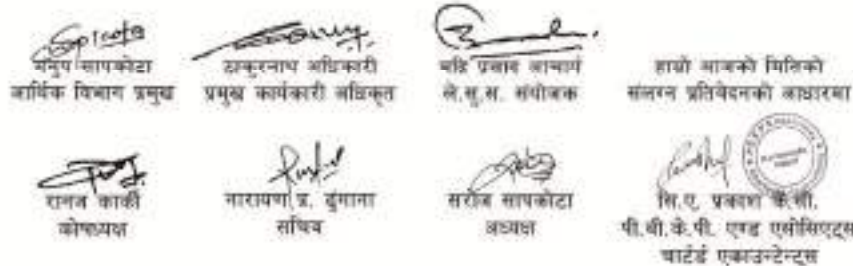 मनुप सापकोटा
आर्थिक विभाग प्रमुख
ठाकुरनाथ अधिकारी
प्रमुख कार्यकारी अधिकृत
प्रसाद आचार्य
ले.सु.स. संयोजक
हाम्रो आजको मितिको
संलग्न प्रतिवेदनको आधारमा
कार्की
कोषाध्यक्ष
नारायण प्र. ढुंगाना
सचिव
सरोज सापकोटा
अध्यक्ष
सि.ए. प्रकाश के.सी.
पी.बी.के.पी. एण्ड एसोसिएट्स
चार्टर्ड एकाउन्टेन्ट्स